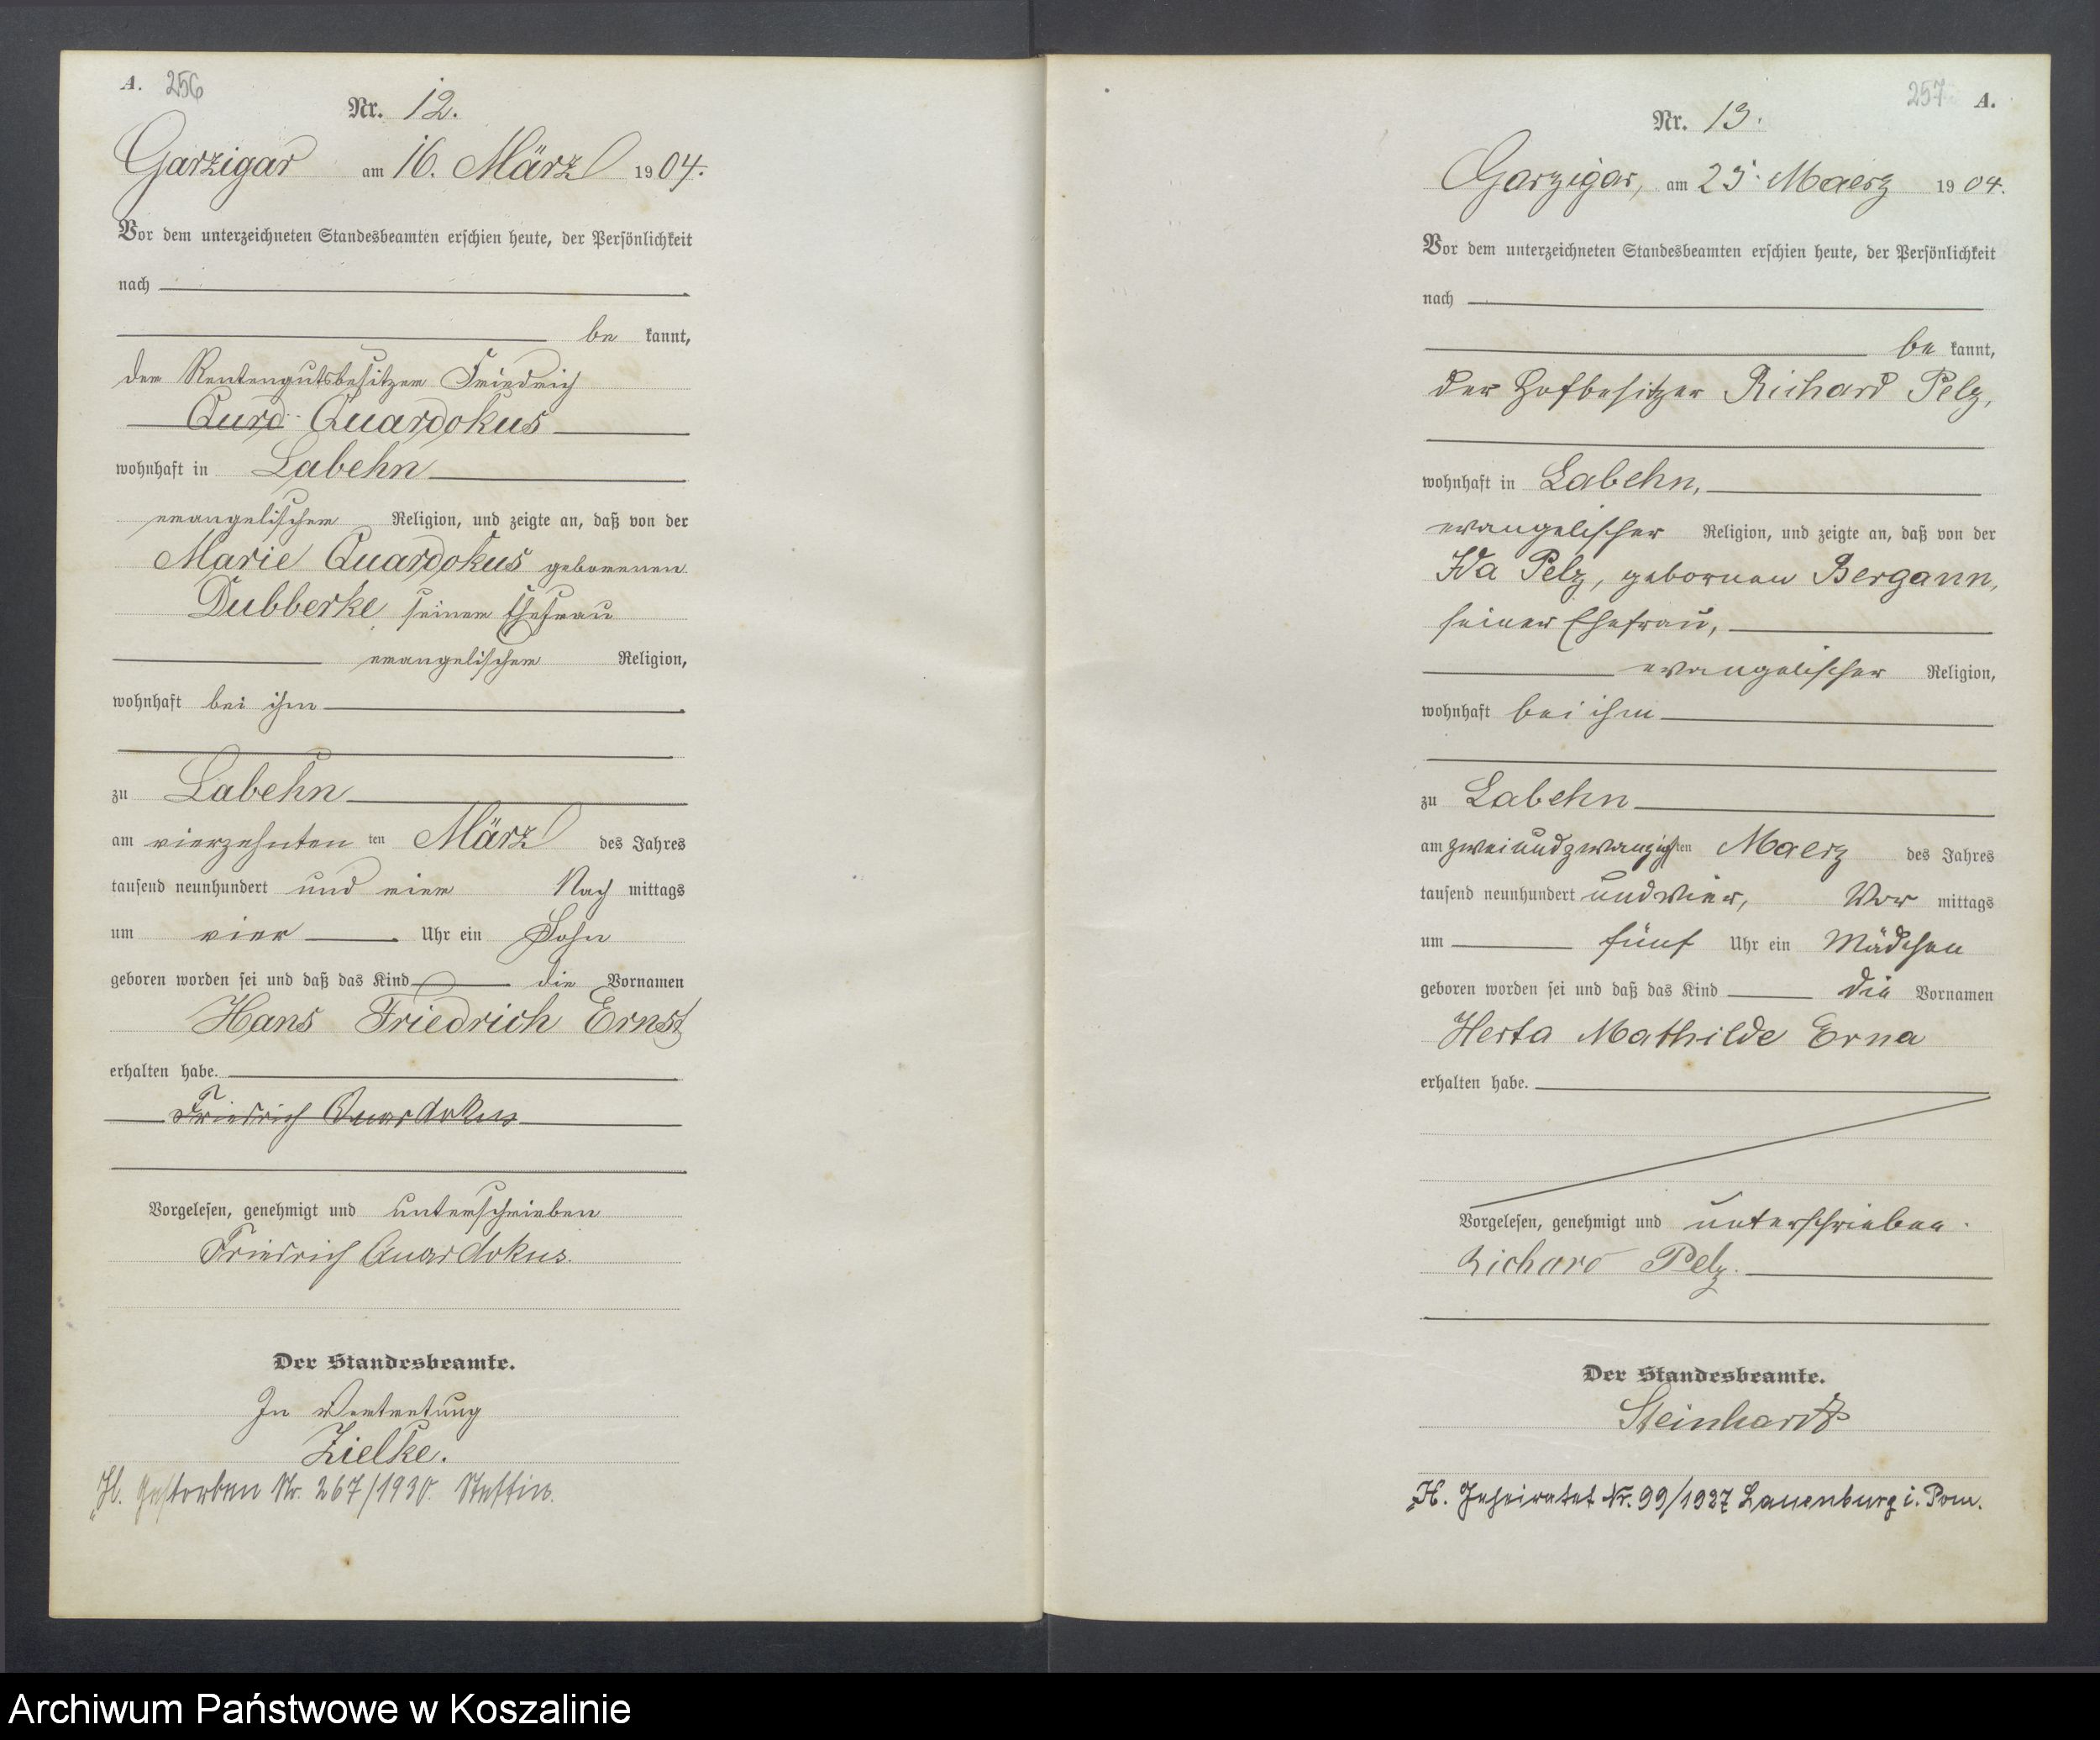 A. 256
Nr. 12.
Garzigar am 16. März 1904.
Vor dem unterzeichneten Standesbeamten erschien heute, der Persönlichkeit
nach
be kannt,
der Rentengutsbesitzer Friedrich
Curd Quardokus
wohnhaft in Labehn
evangelischer Religion, und zeigte an, daß von der
Marie Quardokus geborenen
Dubberke, seiner Ehefrau
evangelischer Religion,
wohnhaft bei ihm
zu Labehn
am vierzehnten ten März des Jahres
tausend neunhundert und vier Nach mittags
um vier Uhr ein Sohn
geboren worden sei und daß das Kind die Vornamen
Hans Friedrich Ernst
erhalten habe.
Friedrich Quardokus
Vorgelesen, genehmigt und unterschrieben
Friedrich Quardokus.
Der Standesbeamte.
In Vertretung
Zielke.
H. Gestorben Nr. 267/1930. Stettin.
257 A.
Nr. 13.
Garzigar, am 25. Maerz 1904.
Vor dem unterzeichneten Standesbeamten erschien heute, der Persönlichkeit
nach
be kannt,
der Hofbesitzer Richard Pelz,
wohnhaft in Labehn,
evangelischer Religion, und zeigte an, daß von der
Ida Pelz, gebornen Bergann,
seiner Ehefrau,
evangelischer Religion,
wohnhaft bei ihm
zu Labehn
am zweiundzwanzigsten Maerz des Jahres
tausend neunhundert und vier, Vor mittags
um fünf Uhr ein Mädchen
geboren worden sei und daß das Kind die Vornamen
Herta Mathilde Erna
erhalten habe.
Vorgelesen, genehmigt und unterschrieben.
Richard Pelz.
Der Standesbeamte.
Steinhardt
H. Geheiratet Nr. 99/1927 Lauenburg i. Pom.
Archiwum Państwowe w Koszalinie